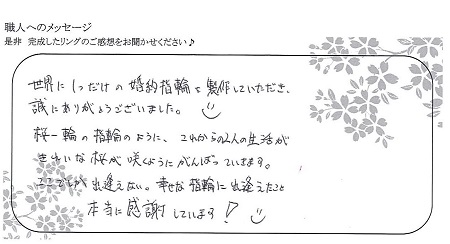 職人へのメッセージ
是非 完成したリングのご感想をお聞かせください♪
世界に1つだけの婚約指輪を製作していただき、
誠にありがとうございました。
桜一輪の指輪のように、これからの2人の生活が
きれいな桜が咲くようにがんばっていきます。
ここでしか出逢えない。幸せな指輪に出逢えたこと
本当に感謝しています!